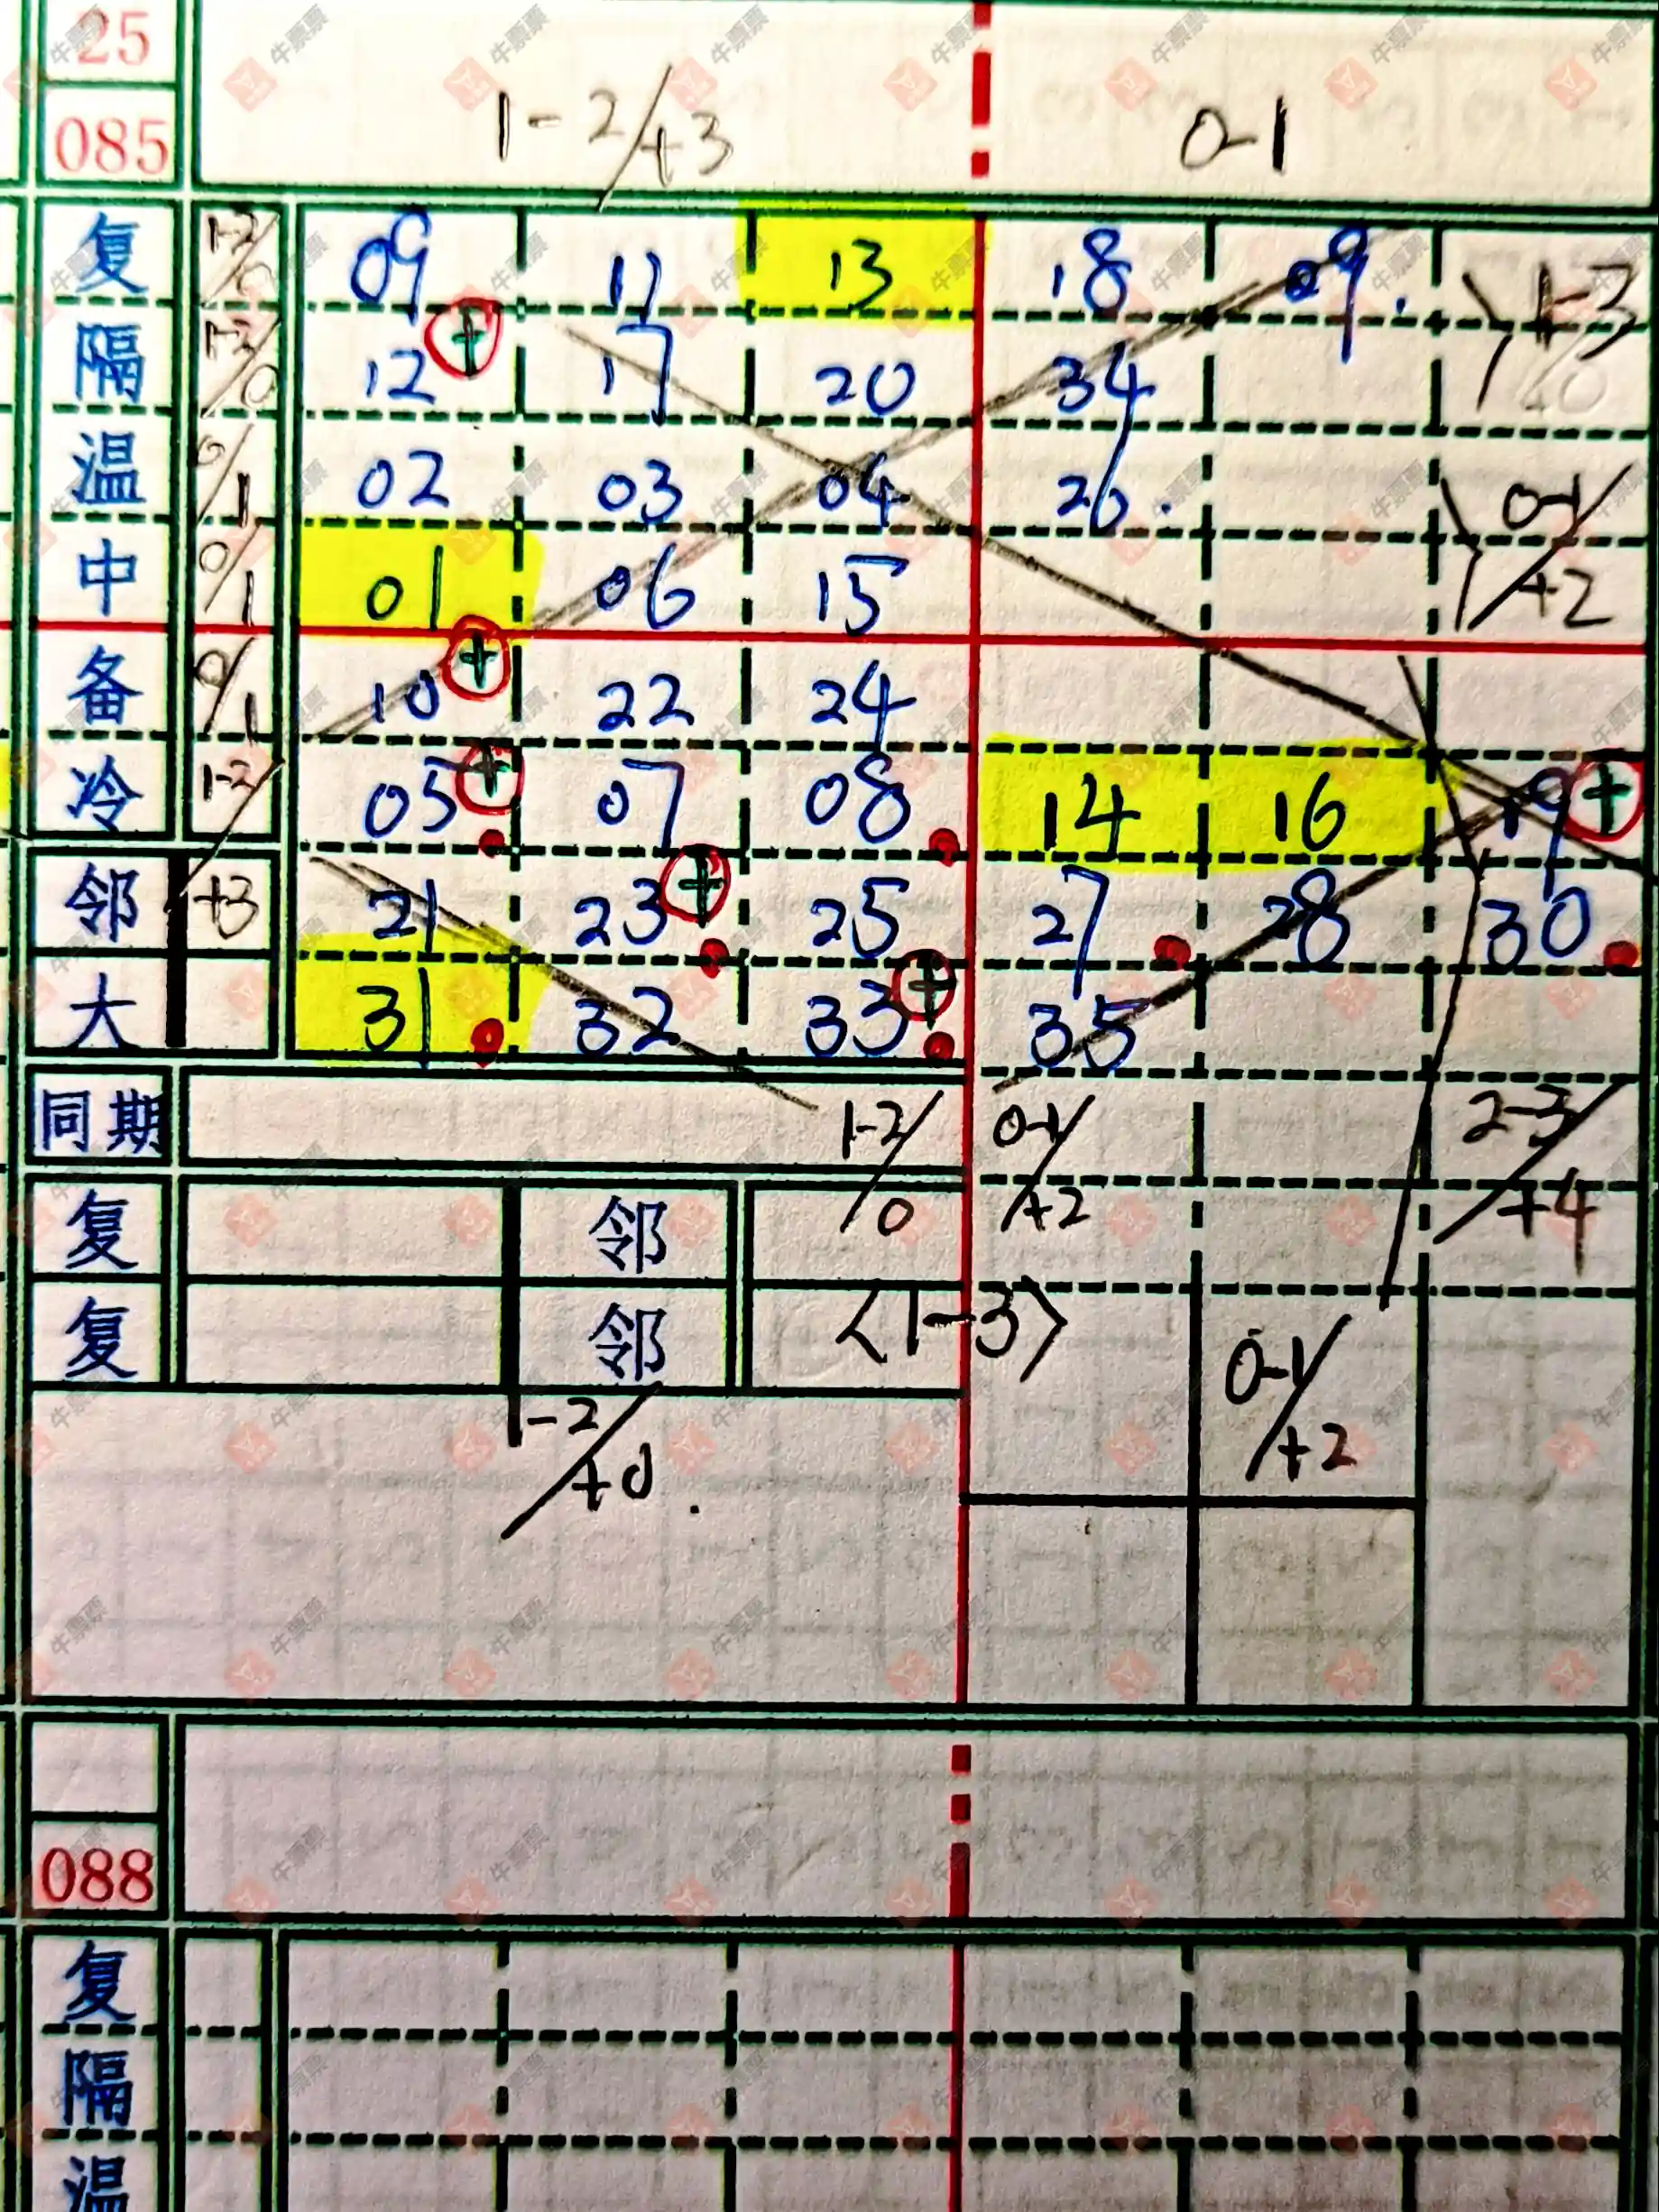 25
085 1-2/+3 0-1
复 1-2/0 09 11 13 18 29. 1-3
隔 1-2/0 12 + 17 20 34 /0
温 0/1 02 03 04 26. 0-1/+2
中 0/1 01 06 15
备 0/1 10 + 22 24
冷 1-2/+3 05 + 07 08 14 16 19 +
邻 21 23 + 25 27 28 30
大 31 32 33 + 35
同期 1-2/0 0-1/+2 2-3/+4
复 邻
复 邻 〈1-3〉 0-1/+2
1-2/+0.
088
复
隔
温
牛票票